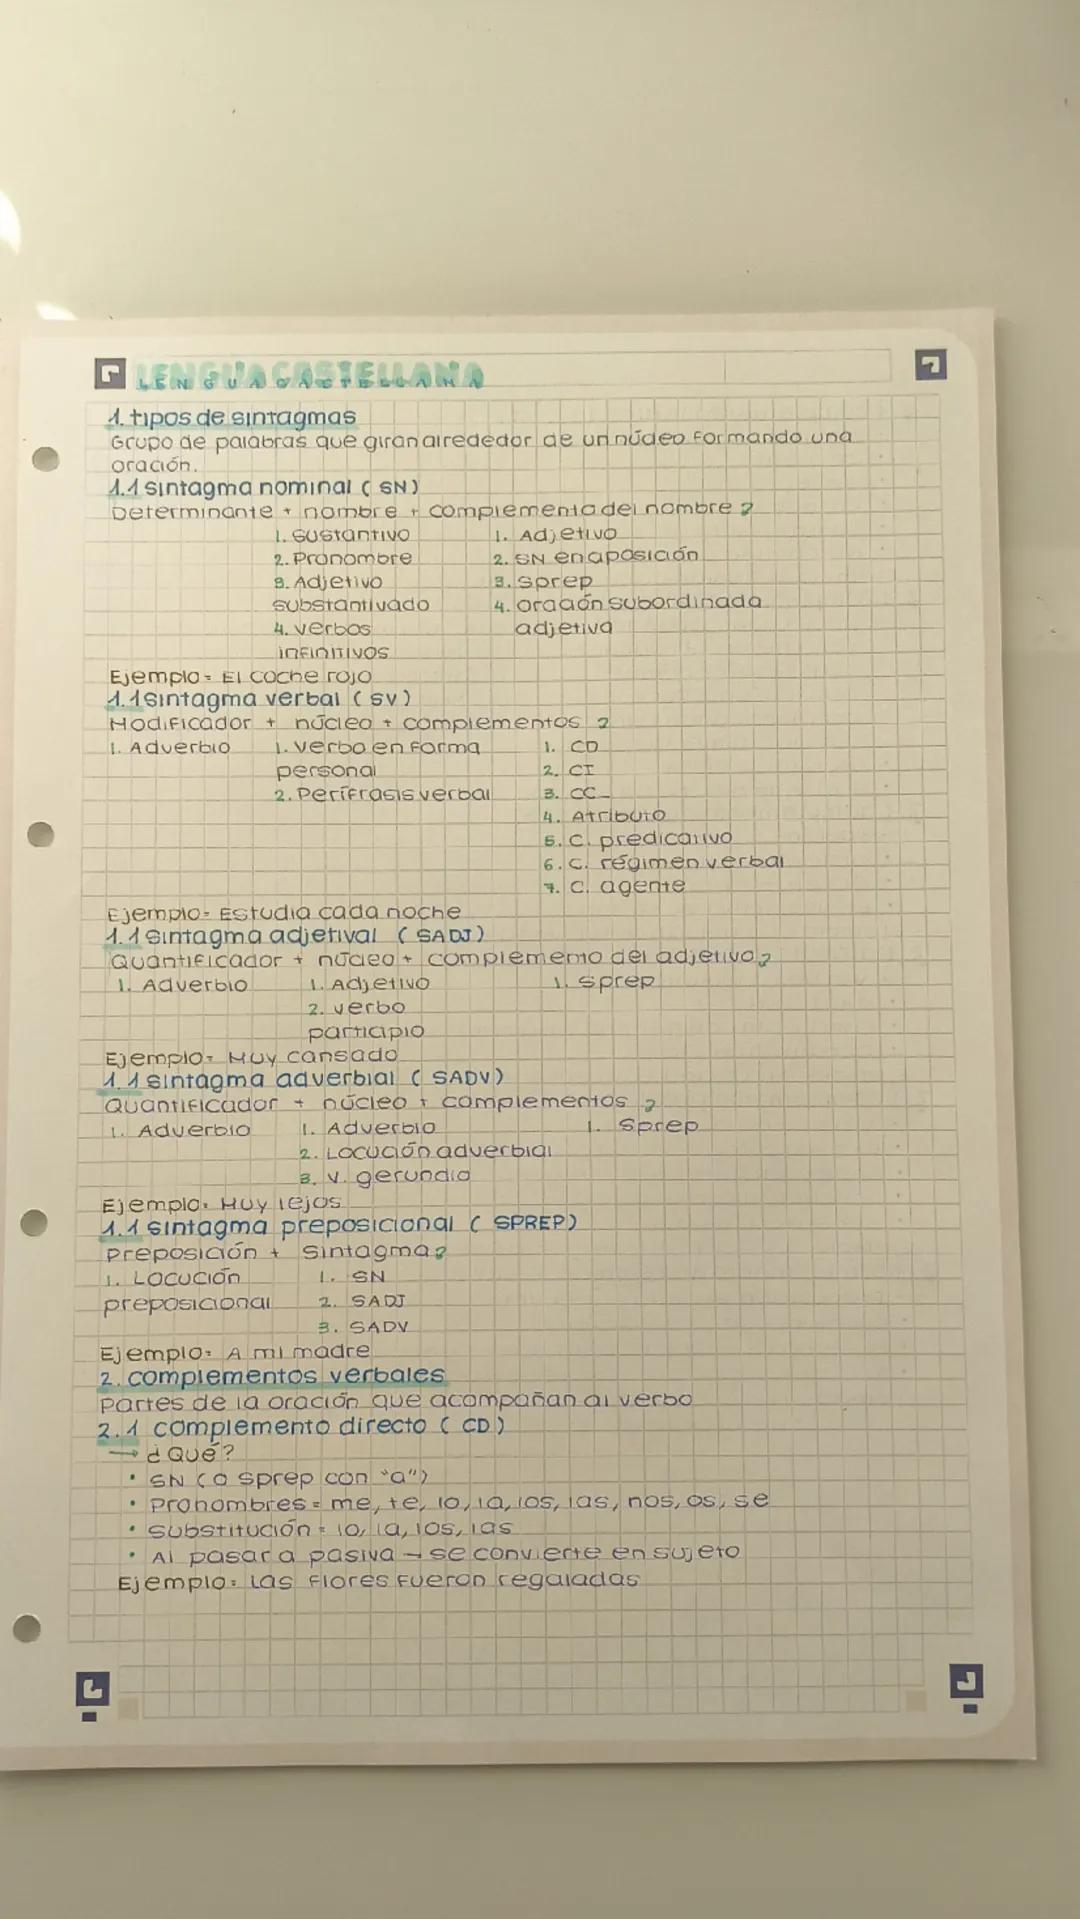 LENGUA CASTELLANA
1. tipos de sintagmas
Grupo de palabras que giran alrededor de un núcleo formando una
oración.
1.1 sintagma nominal (SN)
Determinante + nombre + complemento del nombre ?
1. Sustantivo 1. Adjetivo
2. Pronombre 2. SN en aposición
3. Adjetivo 3. Sprep
substantivado 4. oración subordinada
4. verbos adjetiva
infinitivos
Ejemplo: El coche rojo
1.1 sintagma verbal (SV)
Modificador + núcleo + complementos ?
1. Adverbio 1. verbo en forma 1. CD
personal 2. CI
2. Perífrasis verbal 3. CC
4. Atributo
5. C. predicativo
6. C. régimen verbal
7. C. agente
Ejemplo: Estudia cada noche
1.1 sintagma adjetival (SADJ)
Quantificador + núcleo + complemento del adjetivo ?
1. Adverbio 1. Adjetivo 1. Sprep
2. verbo
participio
Ejemplo: Muy cansado
1.1 sintagma adverbial (SADV)
Quantificador + núcleo + complementos ?
1. Adverbio 1. Adverbio 1. Sprep
2. Locución adverbial
3. V. gerundio
Ejemplo: Muy lejos
1.1 sintagma preposicional (SPREP)
Preposición + Sintagma ?
1. Locución 1. SN
preposicional 2. SADJ
3. SADV
Ejemplo: A mi madre
2. complementos verbales
Partes de la oración que acompañan al verbo
2.1 complemento directo (CD)
→ ¿Qué?
• SN (o Sprep con "a")
• Pronombres = me, te, lo, la, los, las, nos, os, se
• Substitución = lo, la, los, las
• Al pasar a pasiva → se convierte en sujeto
Ejemplo: Las flores fueron regaladas